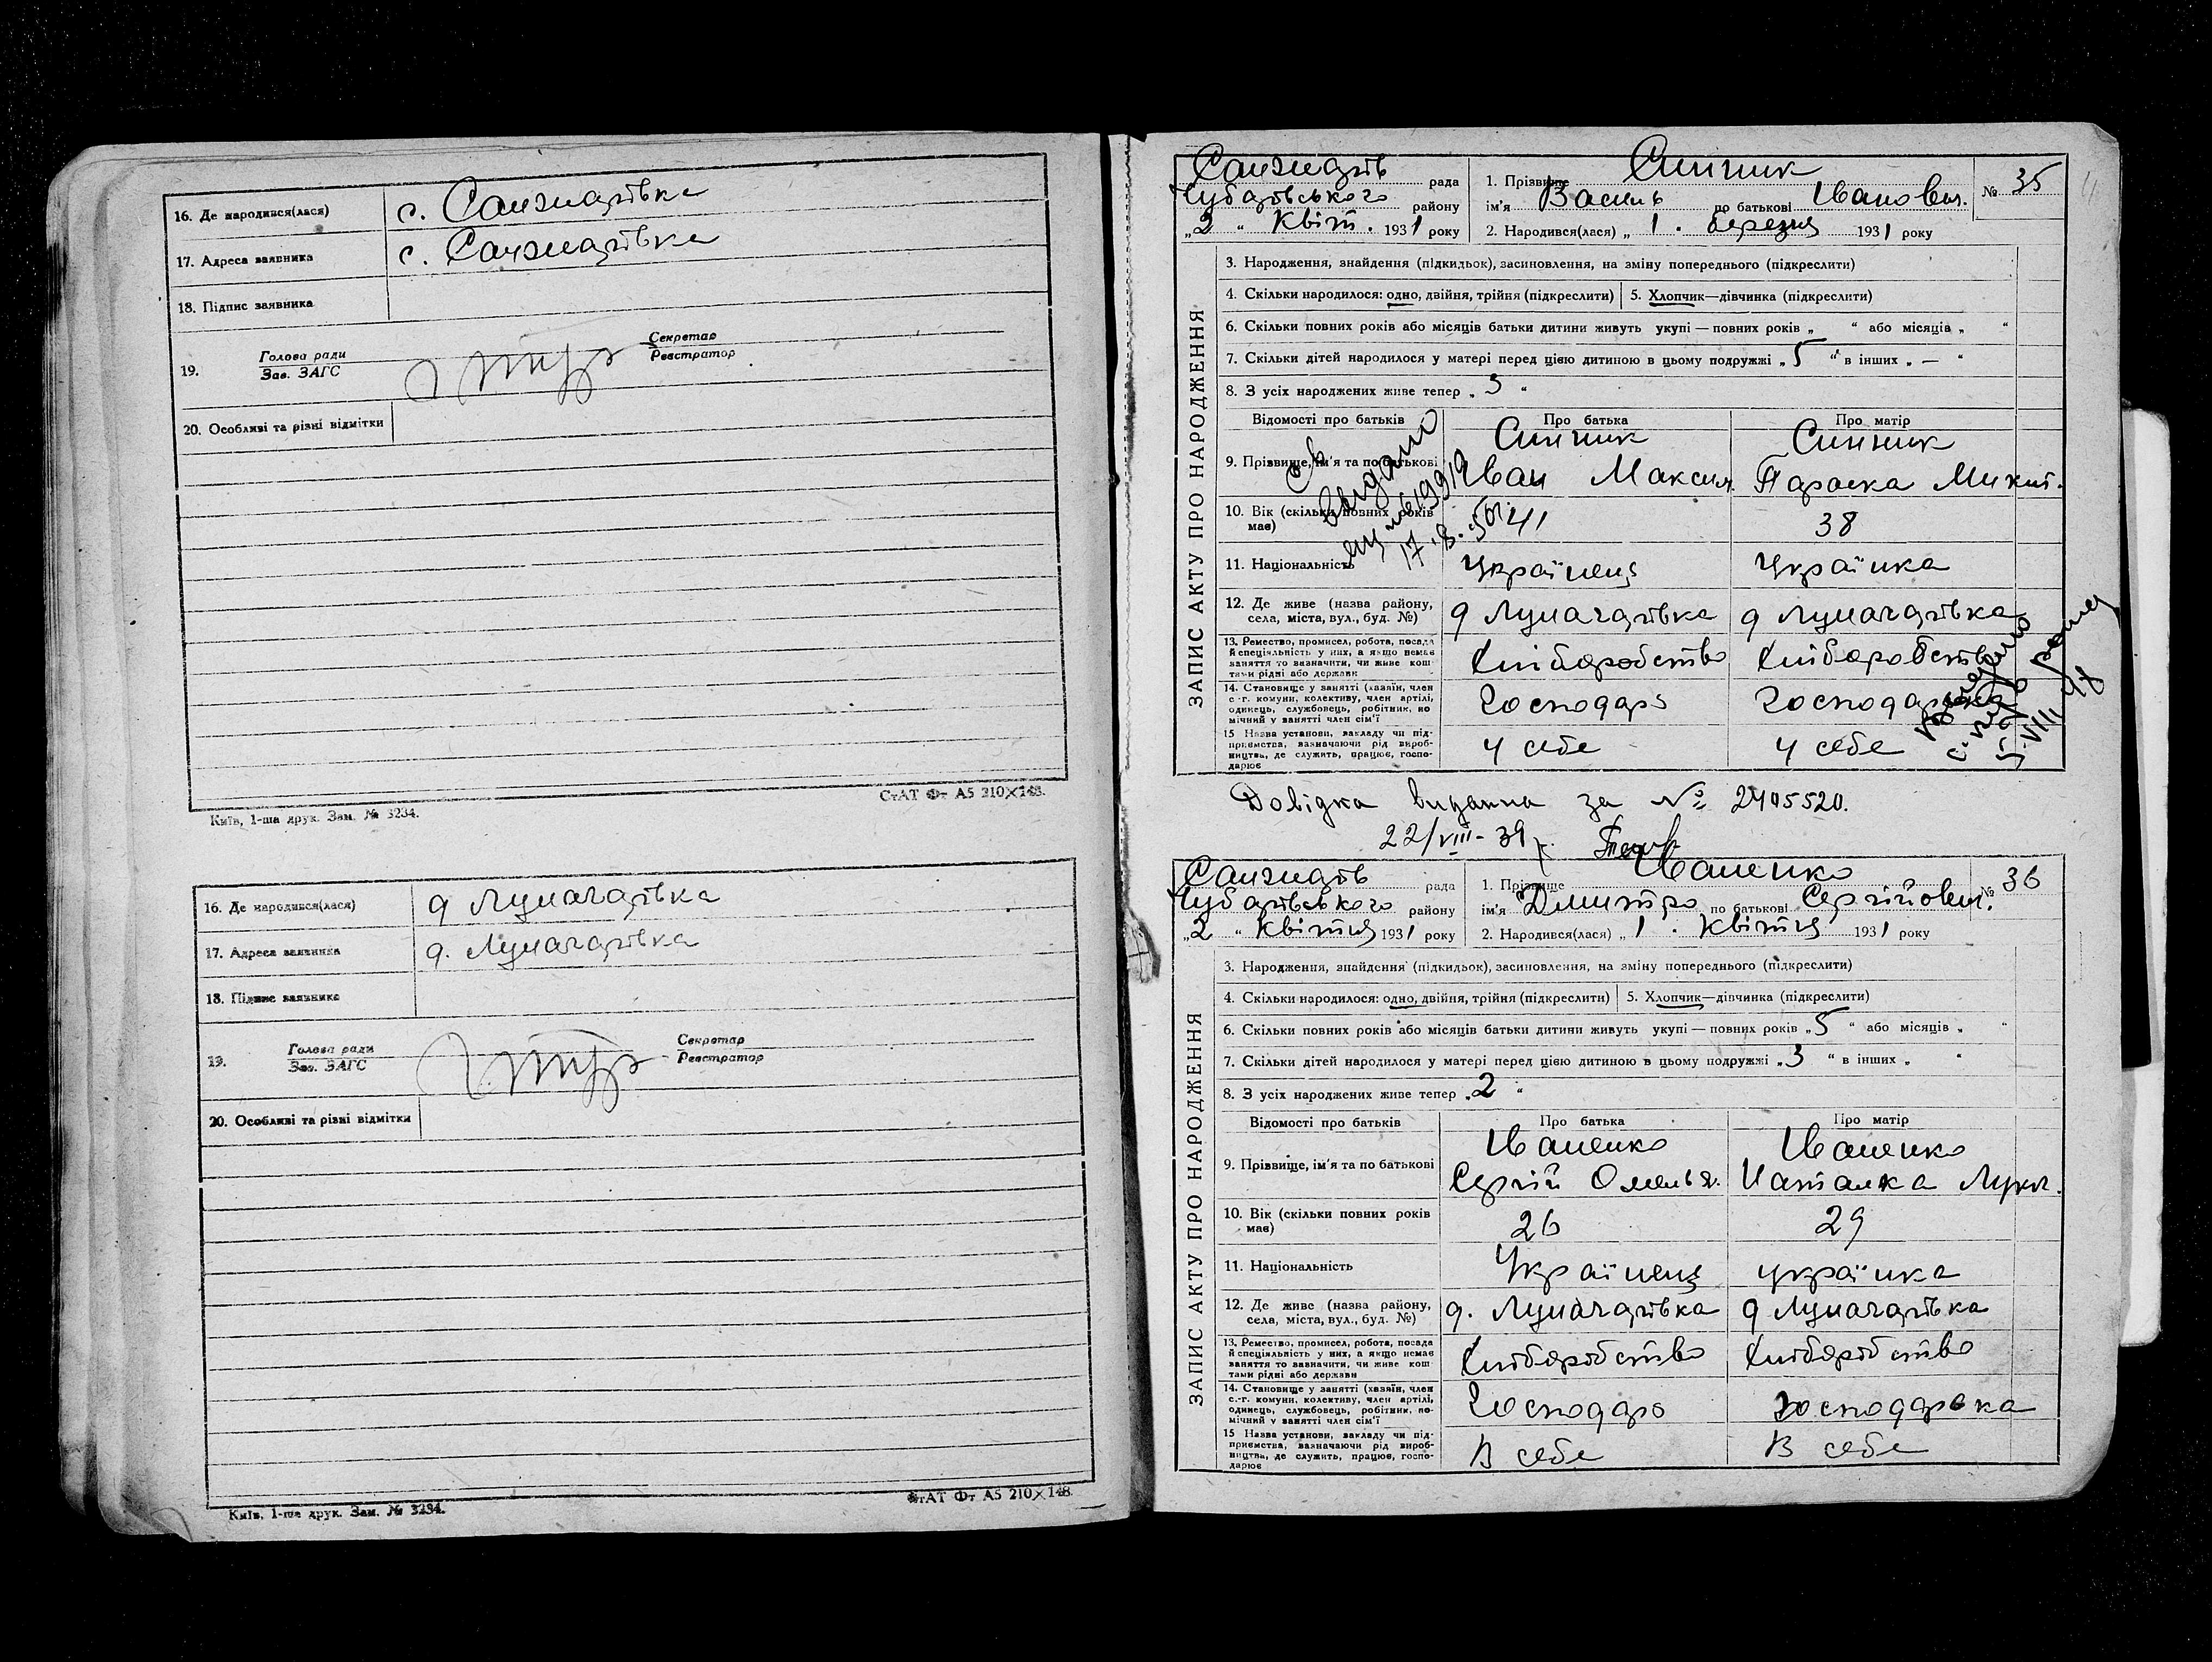 16. Де народився(лася) с. Санжарівка
17. Адреса заявника с. Санжарівка
18. Підпис заявника
19. Голова ради
Зав. ЗАГС
Секретар
Реєстратор
20. Особливі та різні відмітки
Київ, 1-ша друк. Зам. № 3234.
СтАТ Фт А5 210×148.
16. Де народився(лася) д Луначарівка
17. Адреса заявника д. Луначарівка
18. Підпис заявника
19. Голова ради
Зав. ЗАГС
Секретар
Реєстратор
20. Особливі та різні відмітки
Київ, 1-ша друк. Зам. № 3234.
СтАТ Фт А5 210×148.
ЗАПИС АКТУ ПРО НАРОДЖЕННЯ
Санжарів рада
Чубарівського району
„2 “ Квіт. 1931 року
1. Прізвище Синчик
ім'я Василь по батькові Іванович.
№ 35
2. Народився(лася) „ 1 . березня 1931 року
3. Народження, знайдення (підкидьок), засиновлення, на зміну попереднього (підкреслити)
4. Скільки народилося: одно, двійня, трійня (підкреслити) 5. Хлопчик—дівчинка (підкреслити)
6. Скільки повних років або місяців батьки дитини живуть укупі — повних років „ “ або місяців „ “
7. Скільки дітей народилося у матері перед цією дитиною в цьому подружжі „ 5 “ в інших „ — “
8. З усіх народжених живе тепер „ 3 “
Відомості про батьків Про батька Про матір
9. Прізвище, ім'я та по батькові Синчик Синчик
Іван Максим. Параска Микит.
10. Вік (скільки повних років має) 41 38
11. Національність Українець Українка
12. Де живе (назва району, села, міста, вул., буд. №) д Луначарівка д Луначарівка
13. Ремество, промисел, робота, посада й спеціяльність у них, а якщо немає заняття то зазначити, чи живе коштами рідні або держави Хліборобство Хліборобство
14. Становище у занятті (хазяїн, член с.-г. комуни, колективу, член артілі, одинець, службовець, робітник, помічний у занятті член сім'ї Господарь Господарька
15 Назва установи, закладу чи підприємства, зазначаючи рід виробництва, де служить, працює, господарює У себе У себе
св
видано
17.8.50
Довідка выданна за № 2405520.
22/VIII-39р.
ЗАПИС АКТУ ПРО НАРОДЖЕННЯ
Санжарів рада
Чубарівського району
„2 “ Квітня 1931 року
1. Прізвище Іваненко
ім'я Дмитро по батькові Сергійович.
№ 36
2. Народився(лася) „ 1 . Квітня 1931 року
3. Народження, знайдення (підкидьок), засиновлення, на зміну попереднього (підкреслити)
4. Скільки народилося: одно, двійня, трійня (підкреслити) 5. Хлопчик—дівчинка (підкреслити)
6. Скільки повних років або місяців батьки дитини живуть укупі — повних років „ 5 “ або місяців „ “
7. Скільки дітей народилося у матері перед цією дитиною в цьому подружжі „ 3 “ в інших „ “
8. З усіх народжених живе тепер „ 2 “
Відомості про батьків Про батька Про матір
9. Прізвище, ім'я та по батькові Іваненко Іваненко
Сергій Омелья. Наталка Лукл.
10. Вік (скільки повних років має) 26 29
11. Національність Українець українка
12. Де живе (назва району, села, міста, вул., буд. №) д. Луначарівка д Луначарівка
13. Ремество, промисел, робота, посада й спеціяльність у них, а якщо немає заняття то зазначити, чи живе коштами рідні або держави Хліборобство Хліборобство
14. Становище у занятті (хазяїн, член с.-г. комуни, колективу, член артілі, одинець, службовець, робітник, помічний у занятті член сім'ї Господарь господарька
15 Назва установи, закладу чи підприємства, зазначаючи рід виробництва, де служить, працює, господарює В себе В себе